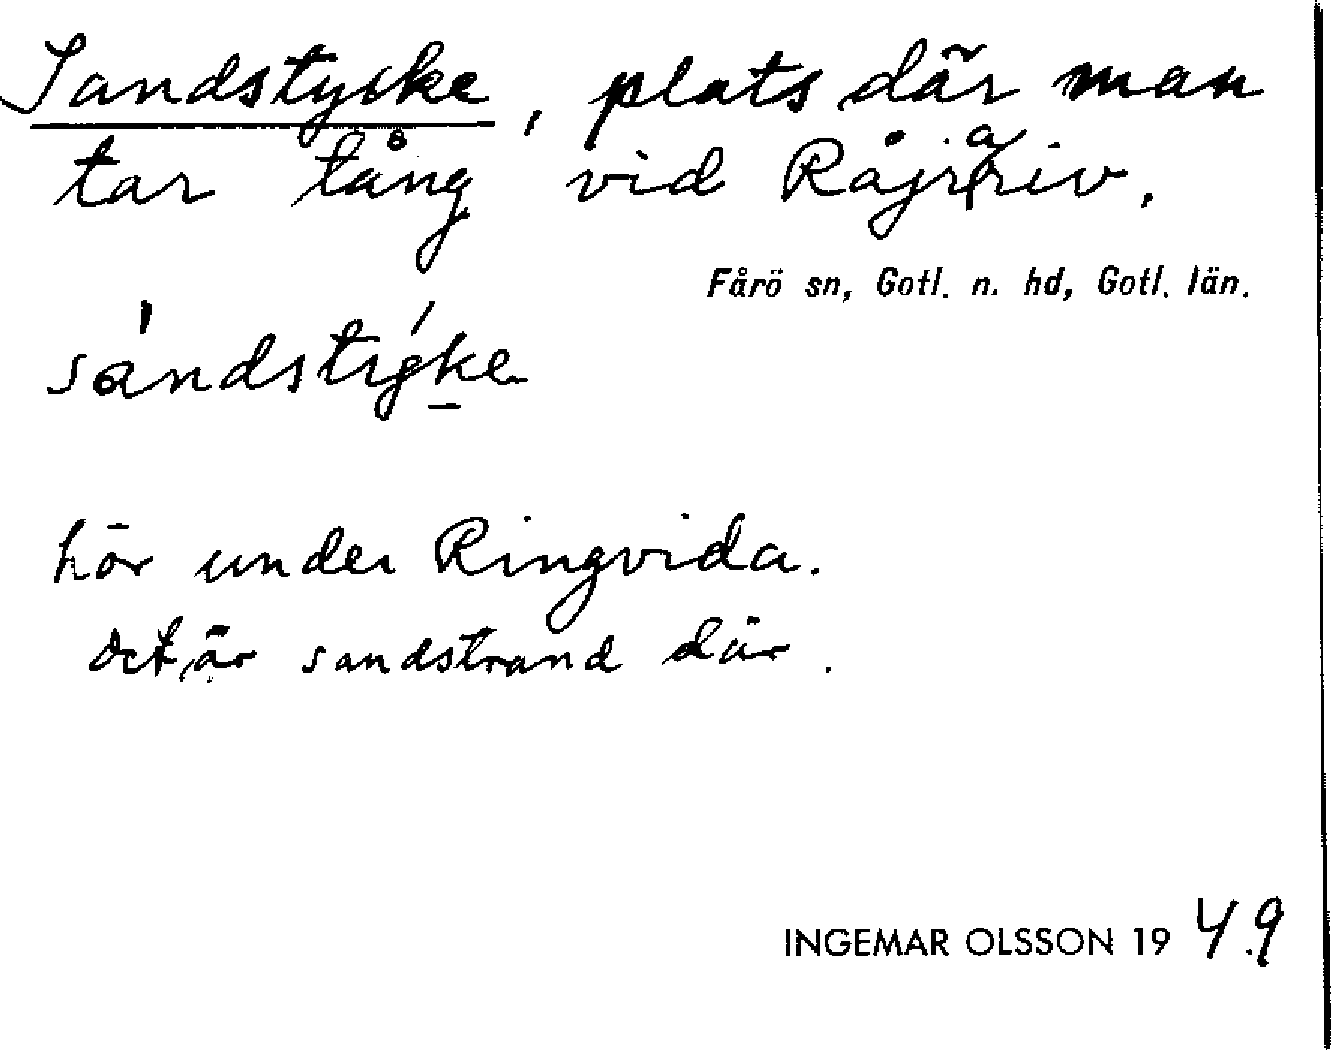 Sandstycke, plats där man
tar tång vid Råjrariv.
Fårö sn, Gotl. n. hd, Gotl. län.
sándstýke
hör under Ringvida.
Det är sandstrand där.
INGEMAR OLSSON 1949